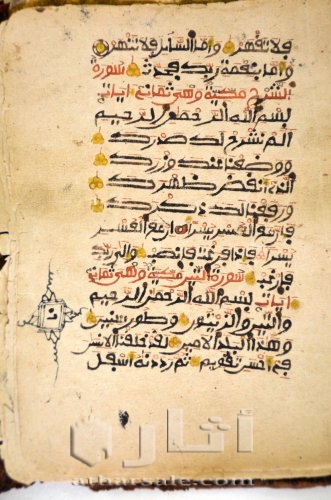 فلا تقهر وأما السائل فلا تنهر
وأما بنعمة ربك فحدث سورة
الشرح مكية وهي ثماني آيات
بسم الله الرحمن الرحيم
ألم نشرح لك صدرك
ووضعنا عنك وزرك
الذي أنقض ظهرك
ورفعنا لك ذكرك
فإن مع العسر يسرا إن مع العسر
يسرا فإذا فرغت فانصب وإلى ربك
فارغب سورة التين مكية وهي ثماني
آيات بسم الله الرحمن الرحيم
والتين والزيتون وطور سينين
وهذا البلد الأمين لقد خلقنا الإنسن
في أحسن تقويم ثم رددنه أسفل
أثار
atharsale.com